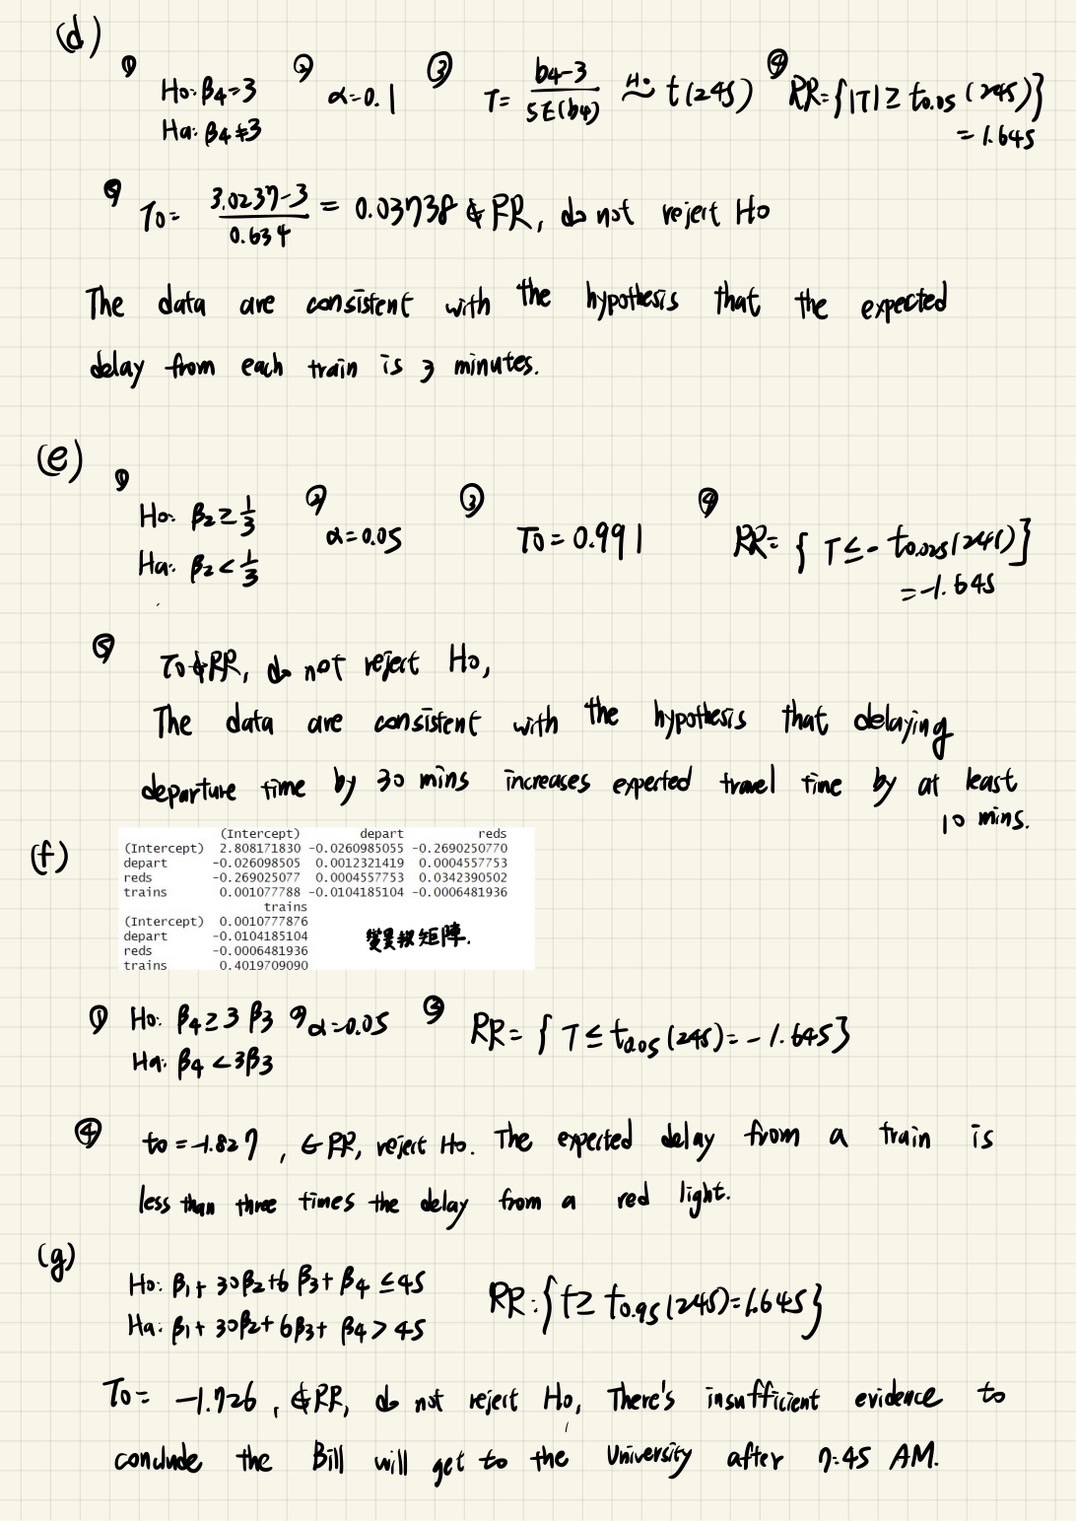 (d)
① ② ③ ④
H₀: β₄=3
Ha: β₄≠3
α=0.1
T= (b₄-3)/SE(b₄) ~ᴴ⁰ t(245)
RR={|T| ≥ t₀.₀₅(245)}
=1.645
⑤ T₀= (3.0237-3)/0.634 = 0.03738 ∉ RR, do not reject H₀
The data are consistent with the hypothesis that the expected
delay from each train is 3 minutes.
(e)
① ② ③ ④
H₀: β₂ ≥ 1/3
Ha: β₂ < 1/3
α=0.05
T₀=0.991
RR= { T ≤ - t₀.₀₂₅(245)}
=-1.645
⑤ T₀∉RR, do not reject H₀,
The data are consistent with the hypothesis that delaying
departure time by 30 mins increases expected travel time by at least
10 mins.
(f)
(Intercept) depart reds
(Intercept) 2.808171830 -0.0260985055 -0.2690250770
depart -0.026098505 0.0012321419 0.0004557753
reds -0.269025077 0.0004557753 0.0342390502
trains 0.001077788 -0.0104185104 -0.0006481936
trains
(Intercept) 0.0010777876
depart -0.0104185104
reds -0.0006481936
trains 0.4019709090
變異數矩陣.
① H₀: β₄ ≥ 3β₃ ② α=0.05 ③ RR= { T ≤ t₀.₀₅(245)=-1.645}
Ha: β₄ < 3β₃
④ t₀=-1.827, ∈RR, reject H₀. The expected delay from a train is
less than three times the delay from a red light.
(g)
H₀: β₁+30β₂+6β₃+β₄ ≤ 45
Ha: β₁+30β₂+6β₃+β₄ > 45
RR:{t ≥ t₀.₉₅(245)=1.645}
T₀= -1.726, ∉RR, do not reject H₀, There's insufficient evidence to
conclude the Bill will get to the University after 7:45 AM.